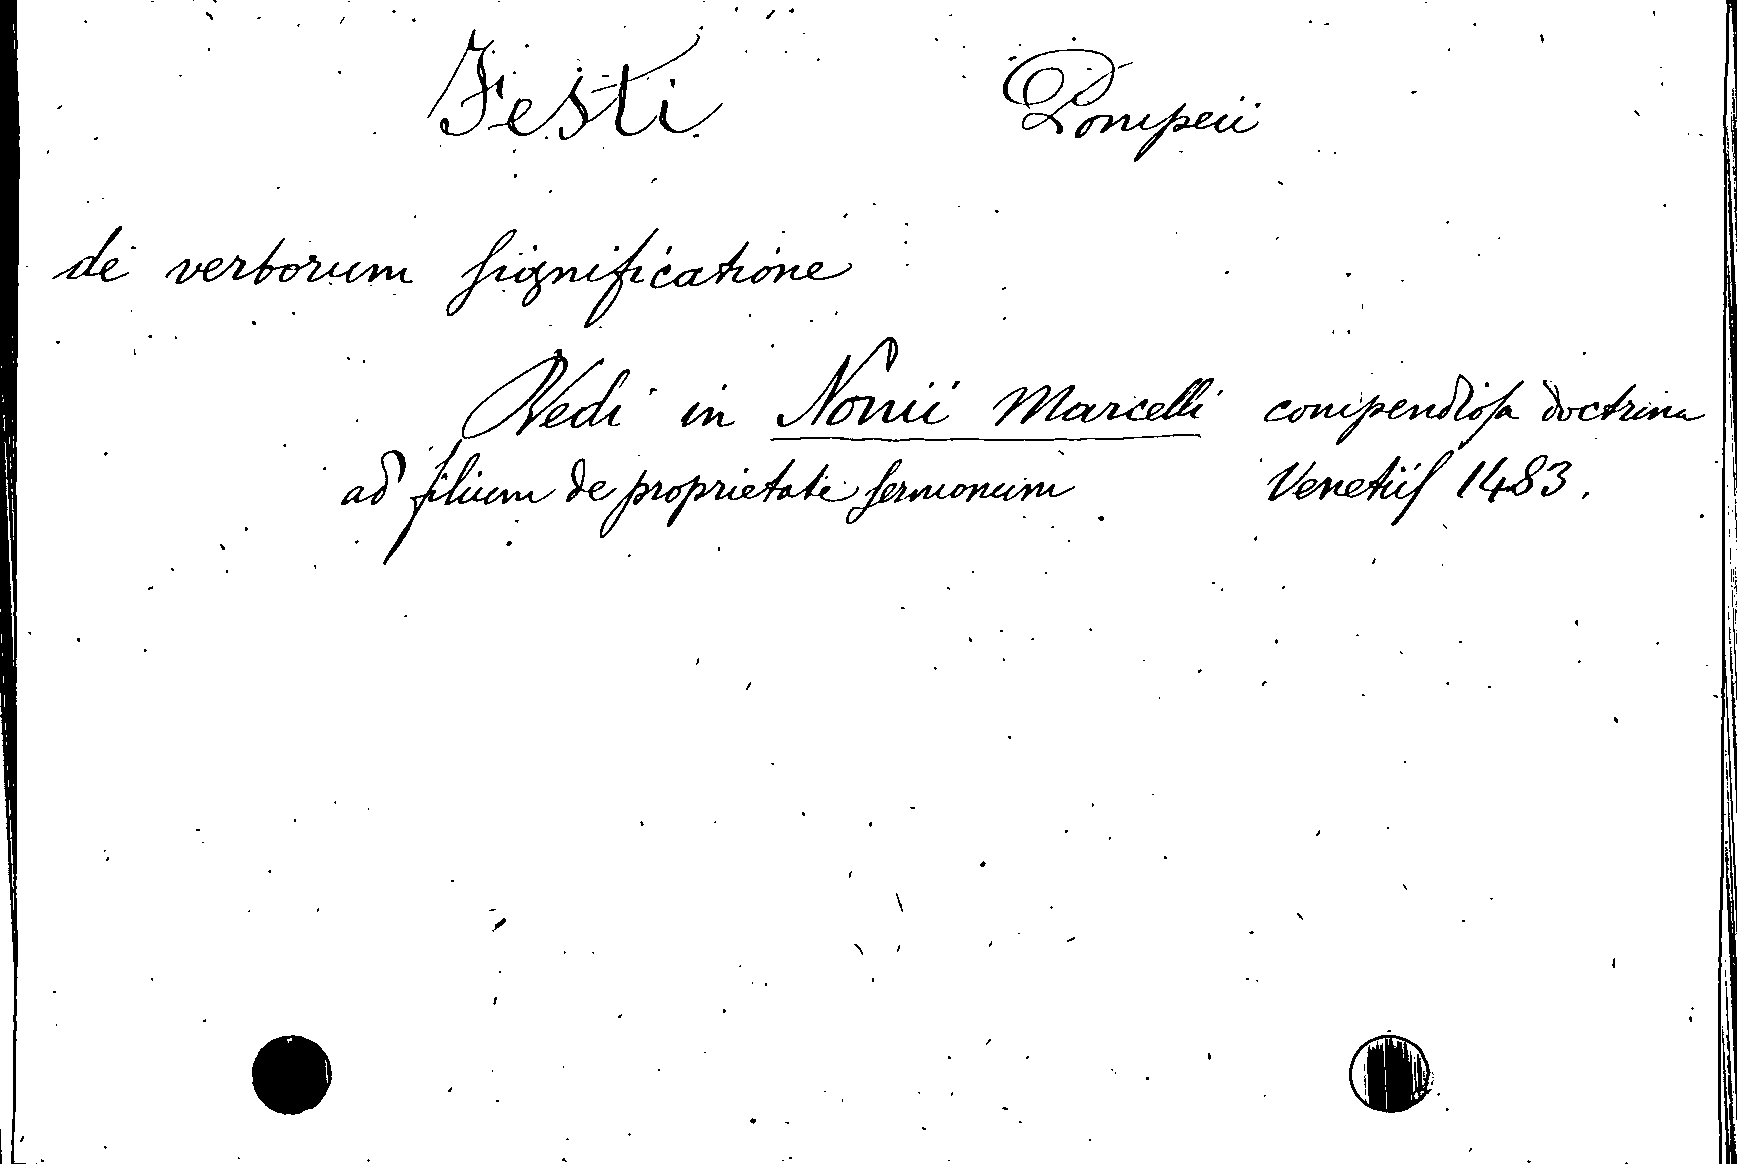 Festi Pompeii
de verborum significatione
Vedi in Nonii Marcelli compendiosa doctrina
ad filium de proprietate sermonum Venetiis 1483.